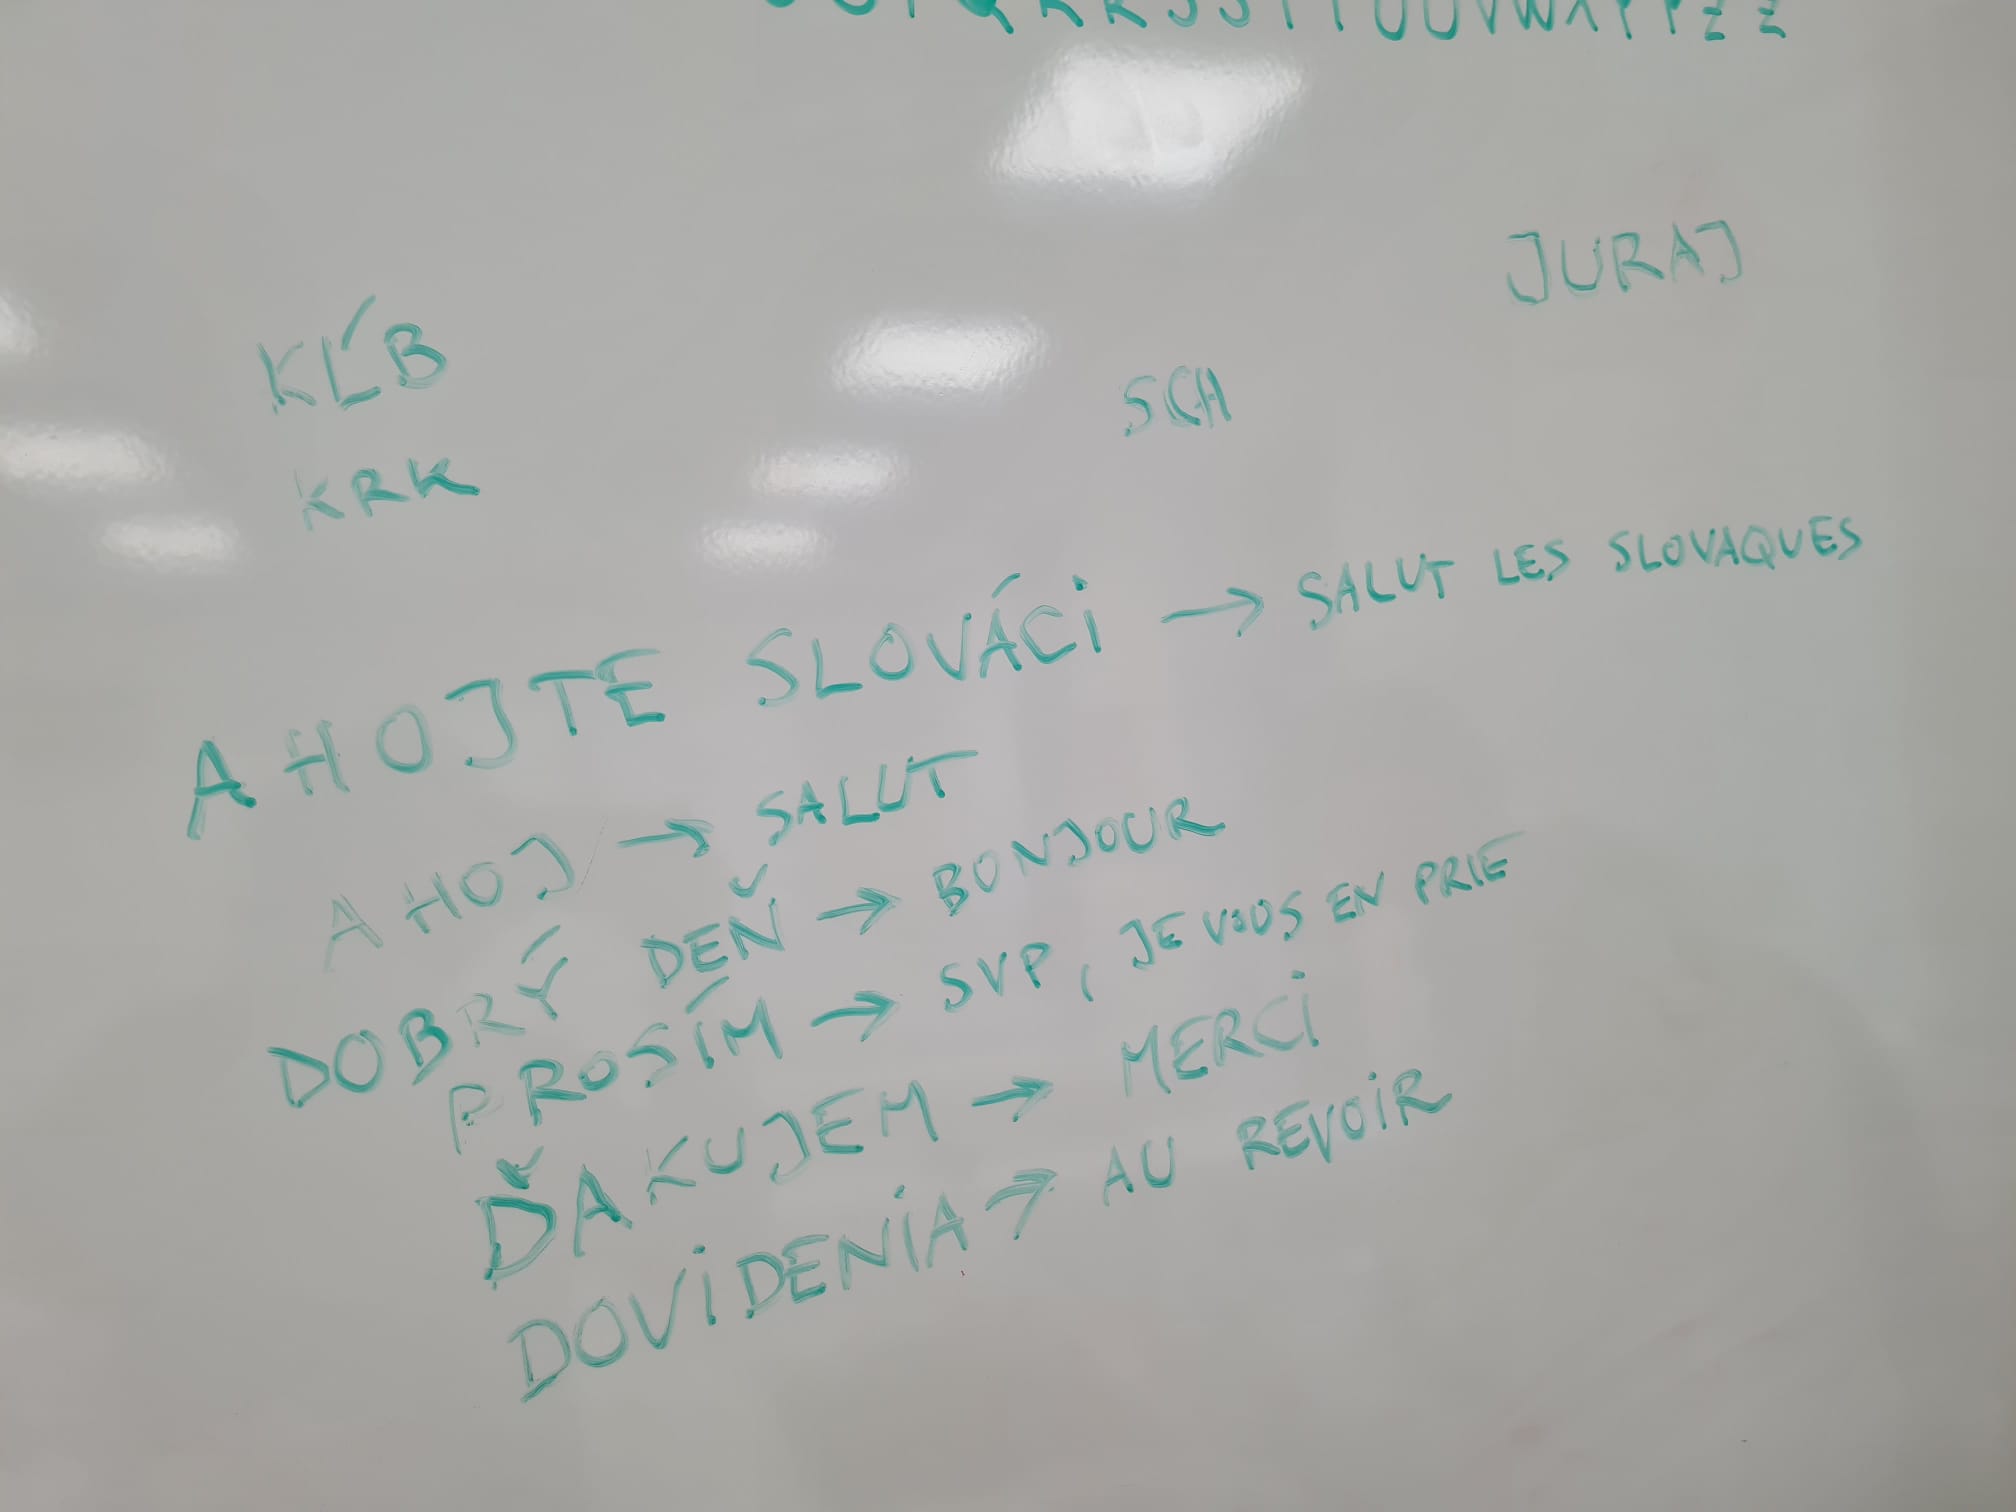 JURAJ
KĹB
SCH
KRK
AHOJTE SLOVÁCI → SALUT LES SLOVAQUES
AHOJ → SALUT
DOBRÝ DEŇ → BONJOUR
PROSÍM → SVP, JE VOUS EN PRIE
ĎAKUJEM → MERCI
DOVIDENIA → AU REVOIR